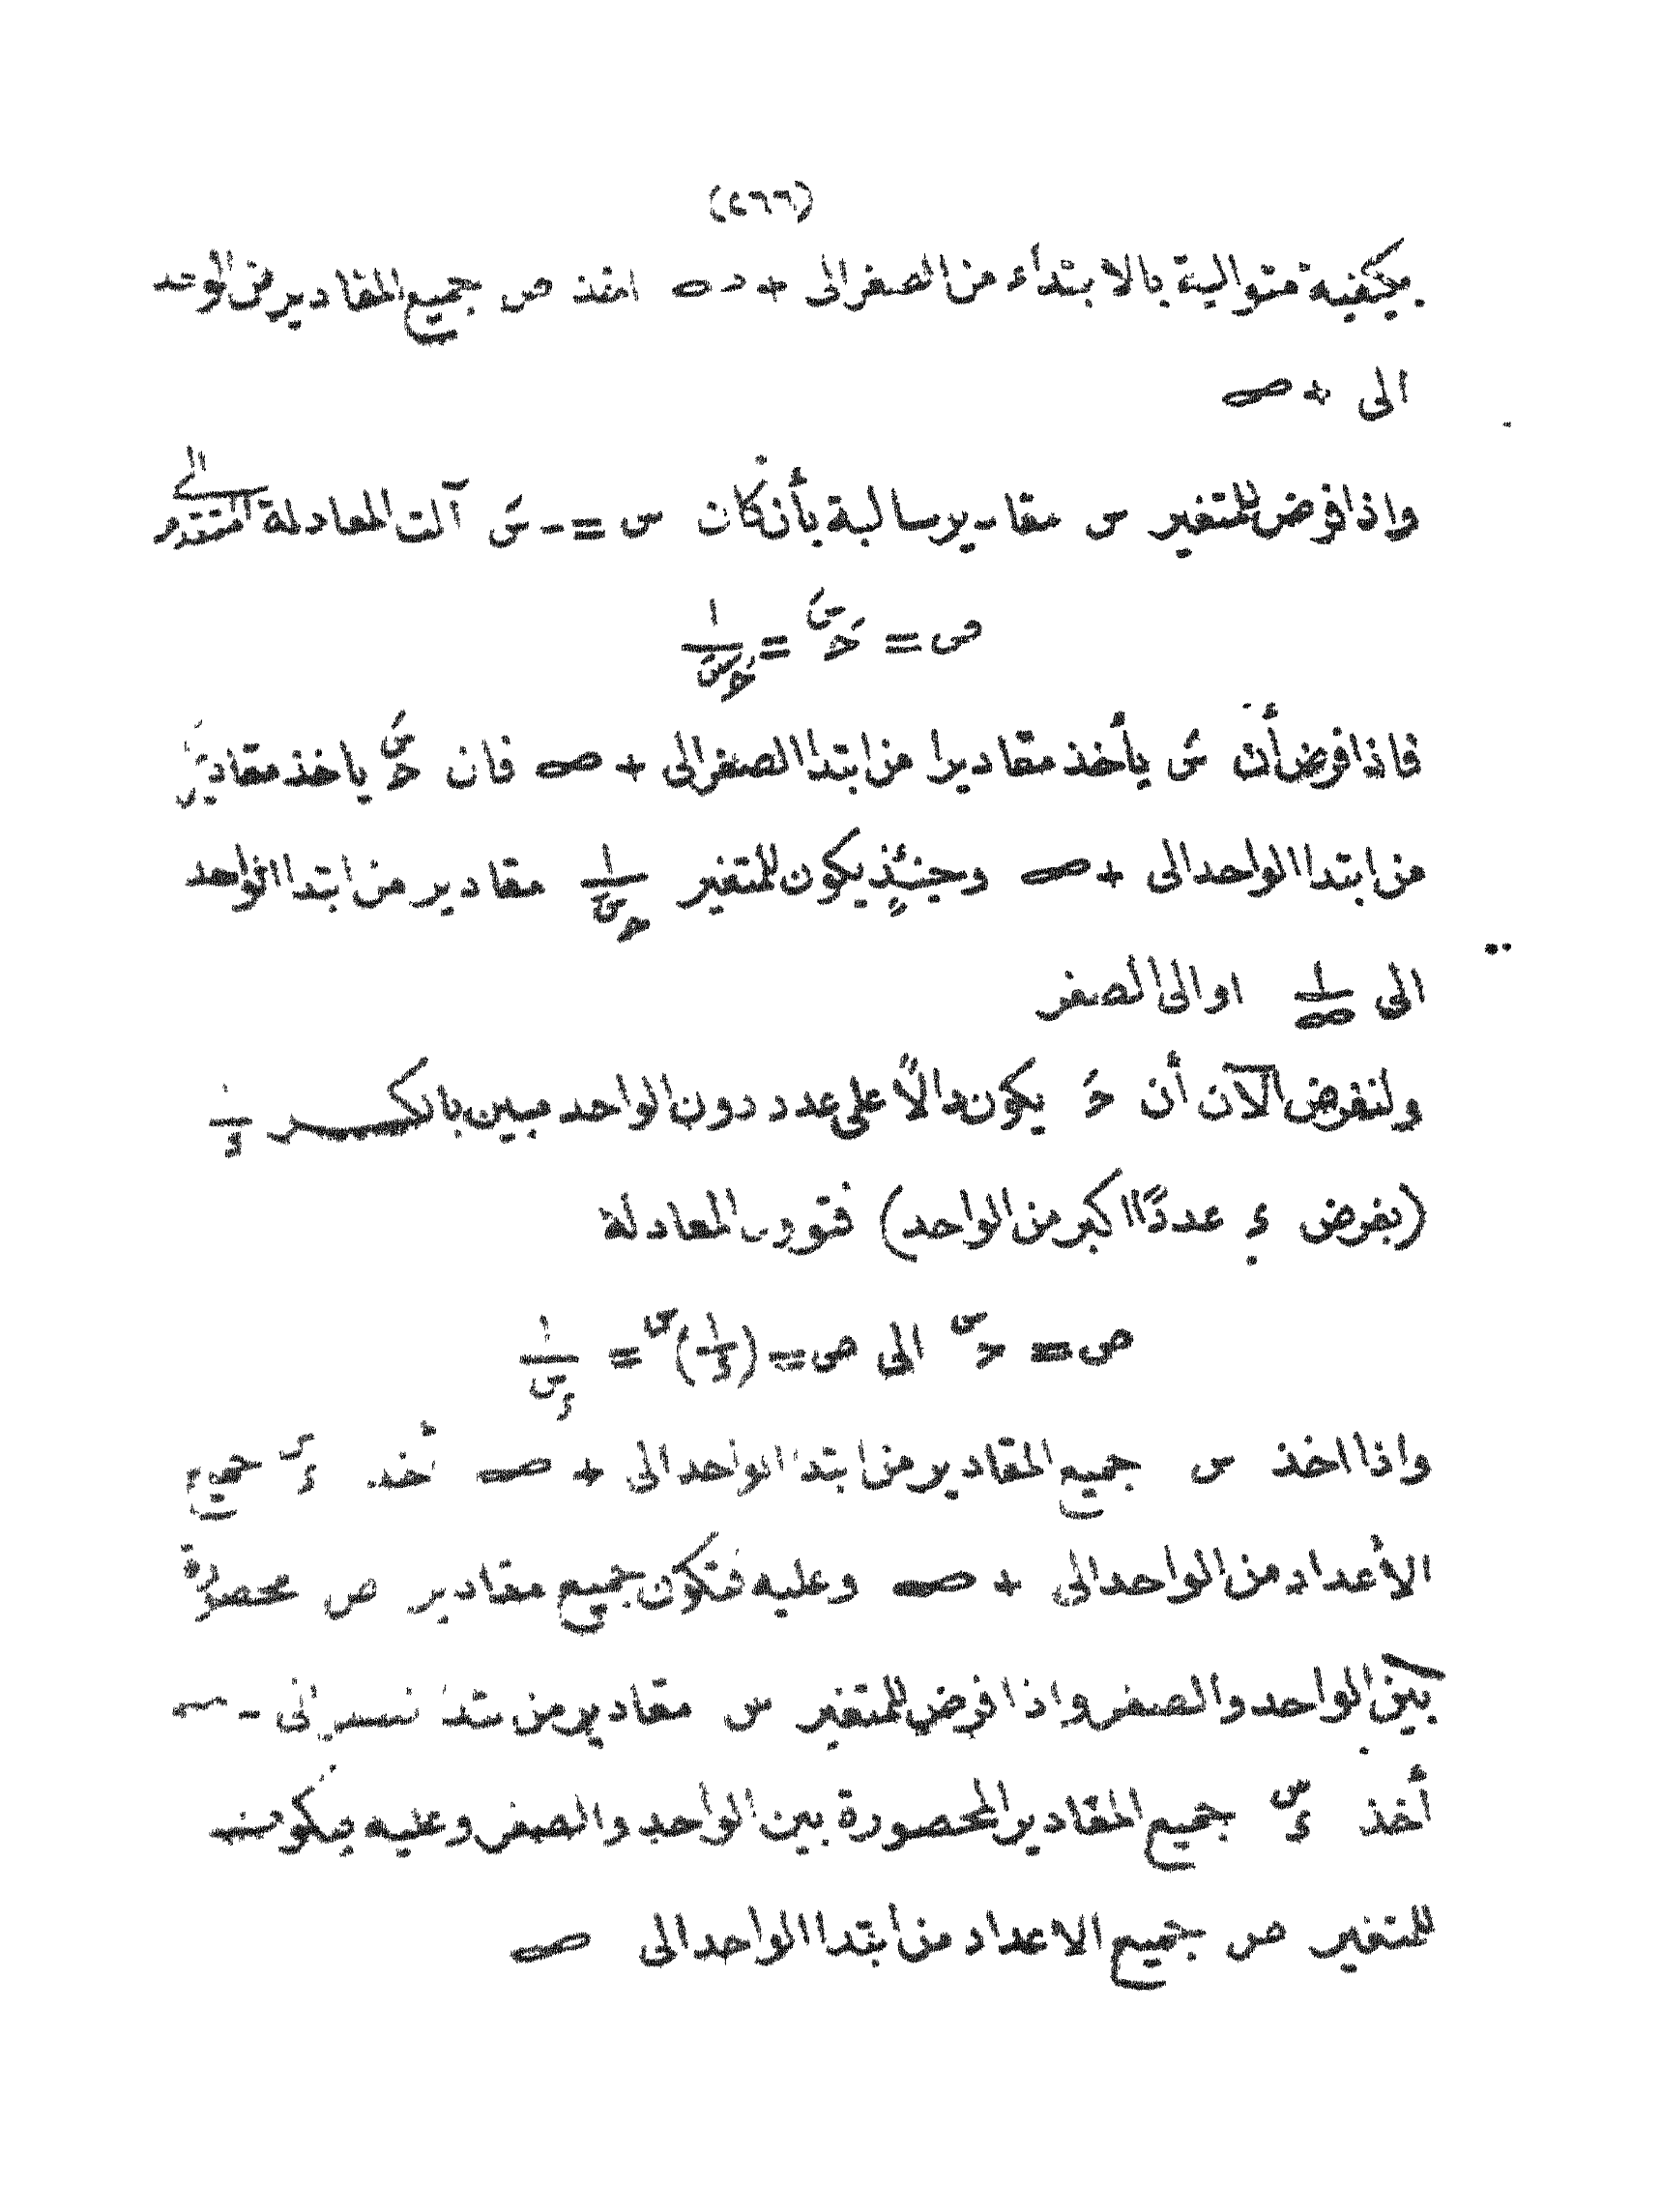 (٢٦٦)
بكيفية متوالية بالابتداء من الصفر الى + ∞ اخذ ص جميع المقادير من الوحد
الى + ∞
واذا فرض للمتغير س مقادير سالبة بأن كان س = - سَ آلت المعادلة المتقدمة الى
ص = حـ^-سَ = ١/حـ^سَ
فاذا فرض أن سَ يأخذ مقاديرا من ابتدا الصفر الى + ∞ فان حـ^سَ ياخذ مقادير
من ابتدا الواحد الى + ∞ وحينئذٍ يكون للمتغير ١/حـ^سَ مقادير من ابتدا الواحد
الى ١/∞ او الى الصفر
ولنفرض الآن أن حـَ يكون دالاً على عدد دون الواحد مبين بالكسر ١/ء
(بفرض ء عددًا اكبر من الواحد) فتؤول المعادلة
ص = حـ^س الى ص = (١/ء)^س = ١/ء^س
واذا اخذ س جميع المقادير من ابتدا الواحد الى + ∞ أخذ ء^س جميع
الأعداد من الواحد الى + ∞ وعليه فتكون جميع مقادير ص محصورة
بين الواحد والصفر واذا فرض للمتغير س مقادير من الى - ∞
أخذ ء^س جميع المقادير المحصورة بين الواحد والصفر وعليه فيكون
للمتغير ص جميع الاعداد من ابتدا الواحد الى ∞